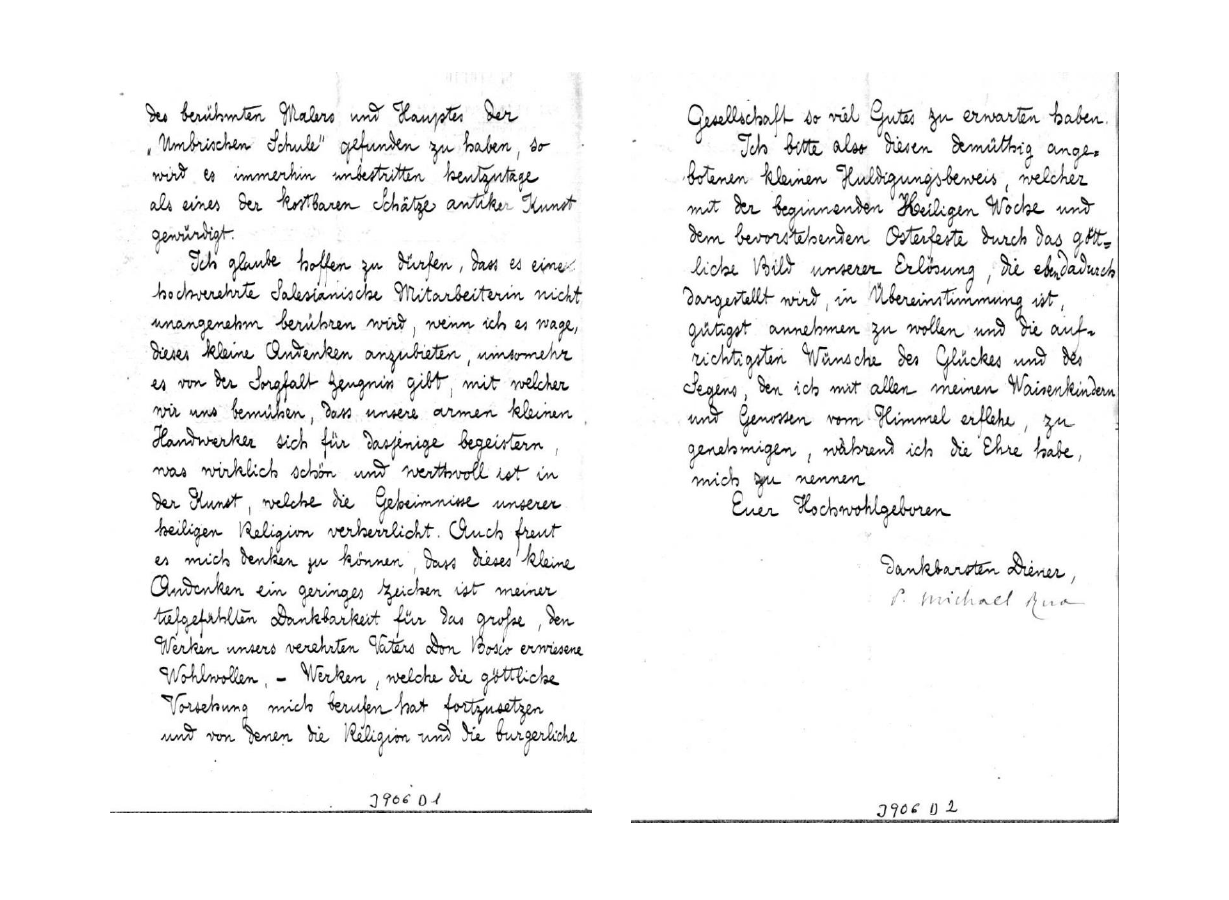 des berühmten Malers und Hauptes der
„Umbrischen Schule" gefunden zu haben, so
wird es immerhin unbestritten heutzutage
als eines der kostbaren Schätze antiker Kunst
gewürdigt.
Ich glaube hoffen zu dürfen, dass es eine
hochverehrte Salesianische Mitarbeiterin nicht
unangenehm berühren wird, wenn ich es wage,
dieses kleine Andenken anzubieten, umsomehr
es von der Sorgfalt Zeugnis gibt, mit welcher
wir uns bemühen, dass unsere armen kleinen
Handwerker sich für dasjenige begeistern,
was wirklich schön und werthvoll ist in
der Kunst, welche die Geheimnisse unserer
heiligen Religion verherrlicht. Auch freut
es mich denken zu können, dass dieses kleine
Andenken ein geringes Zeichen ist meiner
tiefgefühlten Dankbarkeit für das große, den
Werken unsers verehrten Vaters Don Bosco erwiesene
Wohlwollen, – Werken, welche die göttliche
Vorsehung mich berufen hat fortzusetzen
und von denen die Religion und die burgerliche
J906 D1
Gesellschaft so viel Gutes zu erwarten haben.
Ich bitte also diesen demüthig ange=
botenen kleinen Huldigungsbeweis, welcher
mit der beginnenden Heiligen Woche und
dem bevorstehenden Osterfeste durch das gött=
liche Bild unserer Erlösung, die ebendadurch
dargestellt wird, in Übereinstimmung ist,
gütigst annehmen zu wollen und die auf=
richtigsten Wünsche des Glückes und des
Segens, den ich mit allen meinen Waisenkindern
und Genossen vom Himmel erflehe, zu
genehmigen, während ich die Ehre habe,
mich zu nennen
Euer Hochwohlgeboren
Dankbarsten Diener,
P. Michael Rua
J906 D2